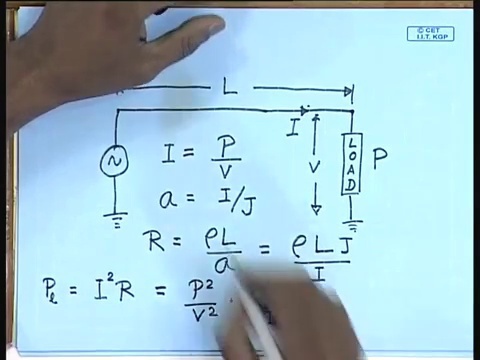 © CET
I.I.T. KGP
L
I
V
LOAD
P
~
I = P/V
a = I/J
R = ρL/a = ρLJ/I
Pₗ = I²R = P²/V² ·